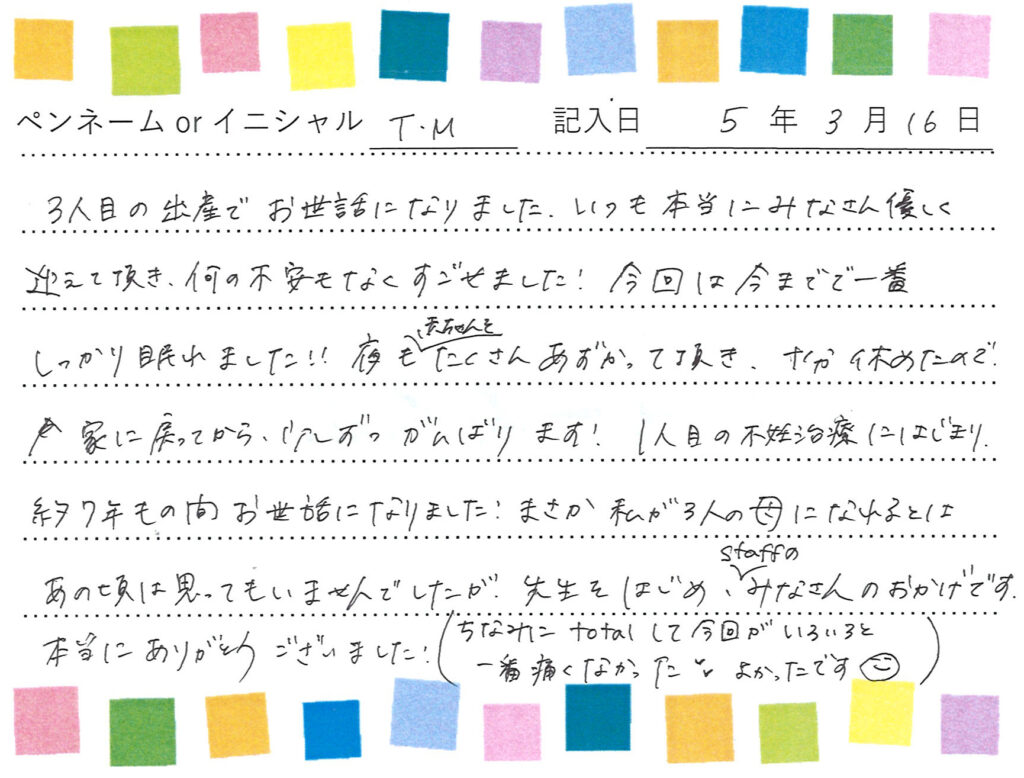 ペンネーム or イニシャル T.M 記入日 5 年 3 月 16 日
3人目の出産で お世話になりました。いつも本当にみなさん優しく
迎えて頂き、何の不安もなくすごせました! 今回は今までで一番
しっかり眠れました!! 夜も赤ちゃんをたくさんあずかって頂き、十分休めたので!
家に戻ってから、少しずつ がんばります! 1人目の不妊治療にはじまり、
約7年もの間 お世話になりました! まさか 私が3人の母になれるとは
あの頃は思ってもいませんでしたが! 先生をはじめ、staffのみなさんのおかげです。
本当にありがとうございました!
(ちなみに totalして今回がいろいろと
一番痛くなかった よかったです)